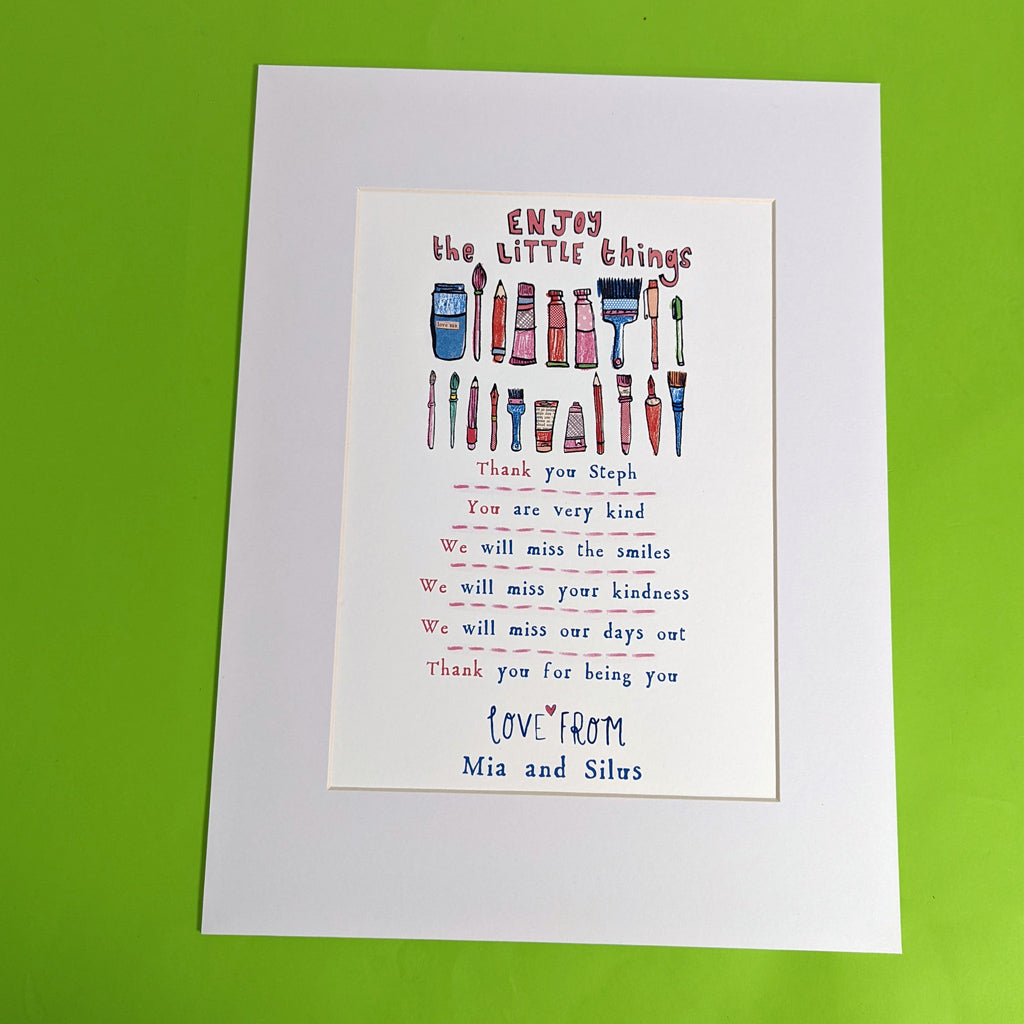 ENJOY
the LiTTLE things
Thank you Steph
You are very kind
We will miss the smiles
We will miss your kindness
We will miss our days out
Thank you for being you
LOVE FROM
Mia and Silus